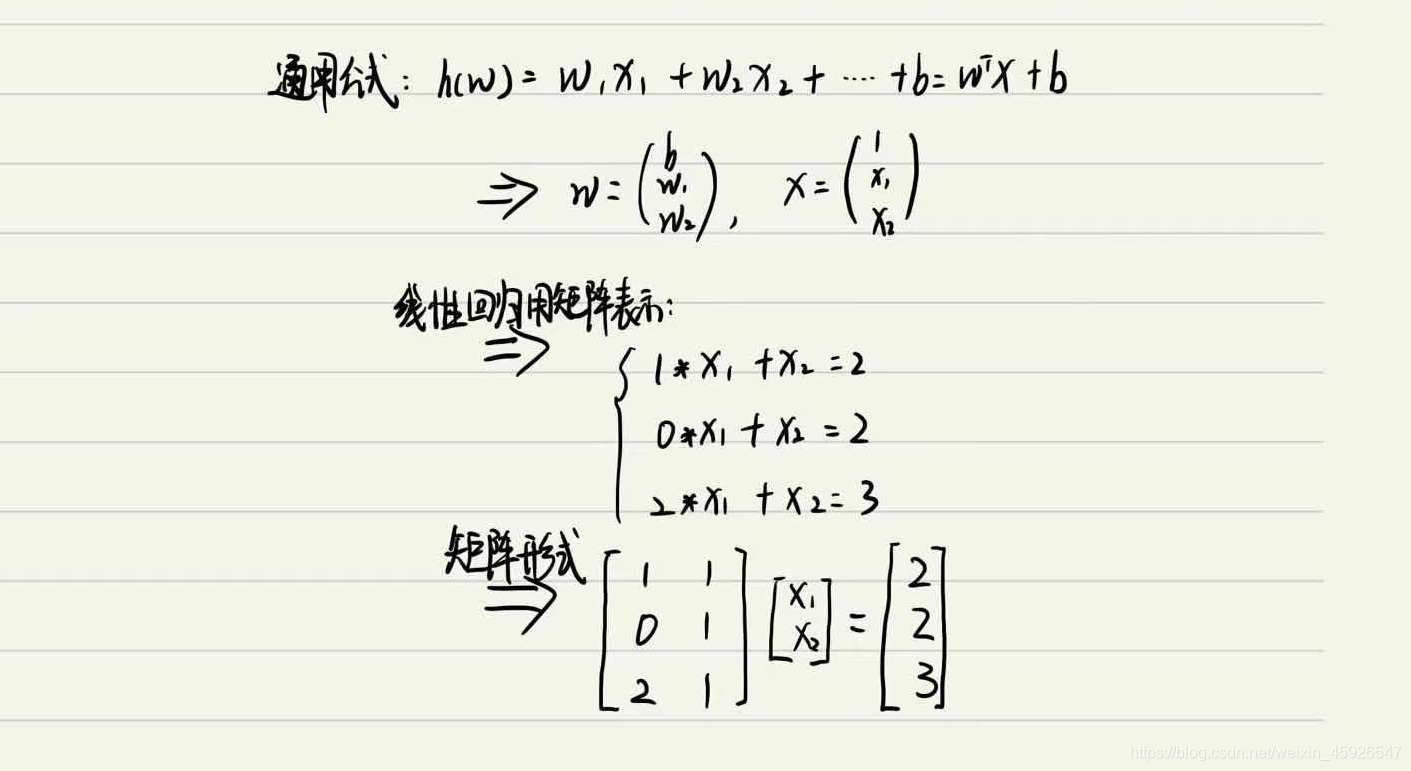 通用公式: h(w) = w₁x₁ + w₂x₂ + ····· + b = wᵀx + b
⇒ w = (b w₁ w₂), x = (1 x₁ x₂)
线性回归用矩阵表示:
⇒ { 1*x₁ + x₂ = 2
0*x₁ + x₂ = 2
2*x₁ + x₂ = 3
矩阵形式
⇒ [1 1; 0 1; 2 1] [x₁; x₂] = [2; 2; 3]
https://blog.csdn.net/weixin_45926547